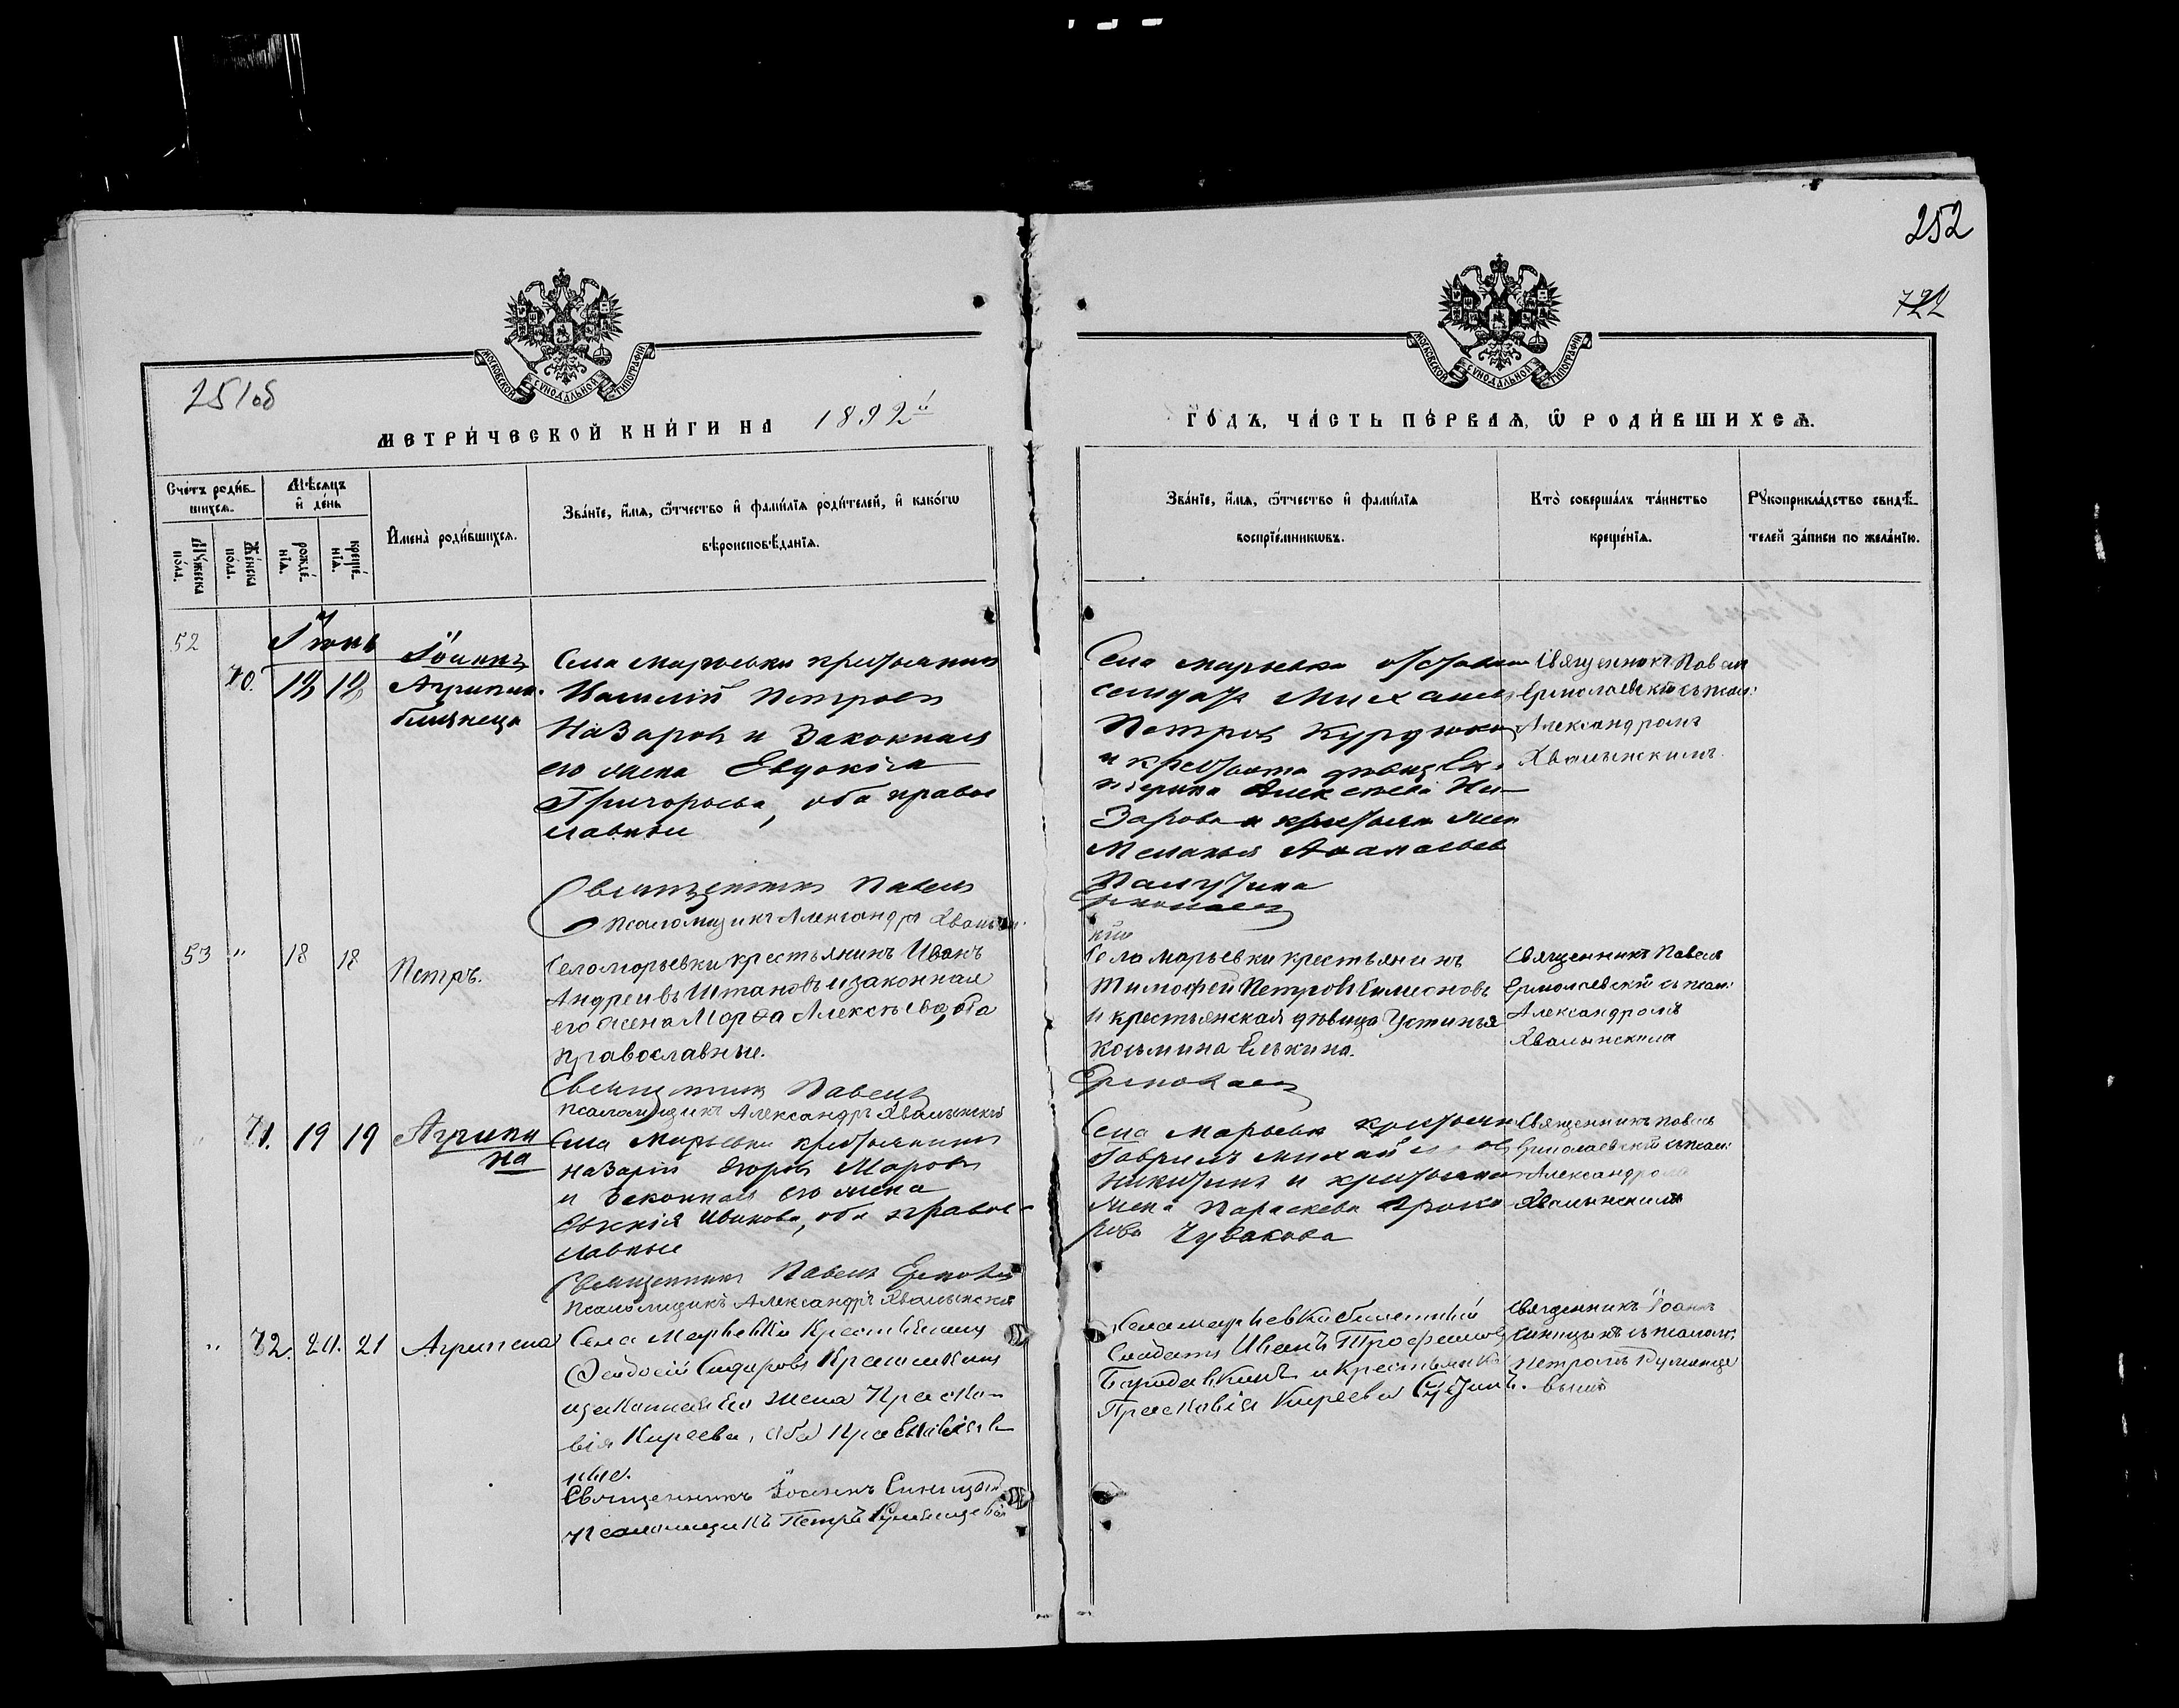 252
722
МОСКОВСКОЙ СѴНОДАЛЬНОЙ ТИПОГРАФІИ
МОСКОВСКОЙ СѴНОДАЛЬНОЙ ТИПОГРАФІИ
251об
МЕТРИ́ЧЕСКОЙ КНИ́ГИ НА 1892й
ГО́ДЪ, ЧА́СТЬ ПЕ́РВАѦ, Ѡ҆ РОДИ́ВШИХСѦ.
Сче́тъ роди́в-
шихсѧ.
Мѣ́сѧцъ
и҆ де́нь
Мꙋ́жеска по́ла.
Же́нска по́ла.
рожде́-нїѧ.
креще́-нїѧ.
И҆мена̀ роди́вшихсѧ.
Зва́нїе, и҆́мѧ, ѻ҆́тчество и҆ фами́лїѧ роди́телей, и҆ како́гѡ
вѣроисповѣ́данїѧ.
Зва́нїе, и҆́мѧ, ѻ҆́тчество и҆ фами́лїѧ
воспрїе́мникѡвъ.
Кто̀ соверша́лъ та́инство
креще́нїѧ.
Рꙋкоприкла́дство свидѣ́-
телей за́писи по жела́нїю.
52
Іюнь
70.
Іоаннъ
Агрипин.
близнеца
Села Марьевки крестьянинъ
Василій Петровъ
Назаровъ и законная
его жена Евдокія
Григорьева, оба правос
лавные
Священникъ Павелъ
Псаломщикъ Александръ Хвалын
Села Марьевки отставн
солдатъ Михаилъ
Петровъ
и крестьян девица Ека
терина Алексеева На
зарова и крестьян жен
Меланья
Ермолаев
кій
Священникъ Павелъ
Ермолаевскій съ псал:
Александромъ
Хвалынскимъ.
53 " 18 18 Петръ.
Села Марьевки крестьянинъ Иванъ
Андреивъ Штановъ и законная
его жена Марѳа Алексѣева, оба
православные.
Священникъ Павелъ
Псаломщикъ Александръ Хвалынскій
Села Марьевки крестьянинъ
Тимофей Петровъ Симеоновъ
и крестьянская дѣвица Устинья
Косьмина Елькина.
Ермолаев
Священникъ Павелъ
Ермолаевскій съ псал:
Александромъ
Хвалынскимъ
" 71. 19 19 Агрипи
на
Села Марьевки крестьянинъ
Назарій Маровъ
и законная его жена
Евгенія Иванова, оба правос-
лавные
Священникъ Павелъ Ермолаев
Псаломщикъ Александръ Хвалынскій
Села Марьевк крестьян
Гавриилъ Михайловъ
Никитинъ и крестьянк
жена Параскева
Чувакова
Священникъ Павелъ
Ермолаевскій съ псал:
Александромъ
Хвалынскимъ
" 72. 20. 21 Агрипена
Села Марьевки Крестьянинъ
Феодосій Сидоровъ
и законная его жена Праско-
вія Киреева, оба православ
ные.
Священникъ Іоаннъ Синицынъ
Псаломщикъ Петръ Румянцевъ
Села Марьевки билетный
Солдатъ Иванъ Трофимовъ
Бородавкинъ и Крестьянка
Прасковія Киреева
Священникъ Іоаннъ
Синицынъ съ псалом.
Петромъ Румянце
вымъ